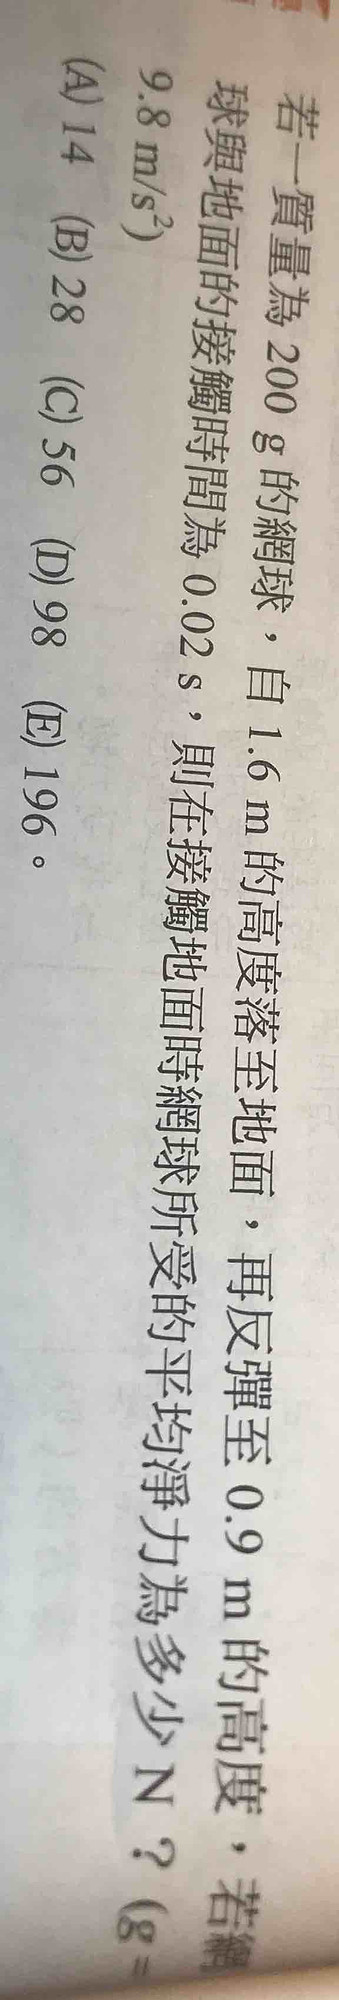 若一質量為 200 g 的網球，自 1.6 m 的高度落至地面，再反彈至 0.9 m 的高度，若網
球與地面的接觸時間為 0.02 s，則在接觸地面時網球所受的平均淨力為多少 N？(g =
9.8 m/s²)
(A) 14 (B) 28 (C) 56 (D) 98 (E) 196。